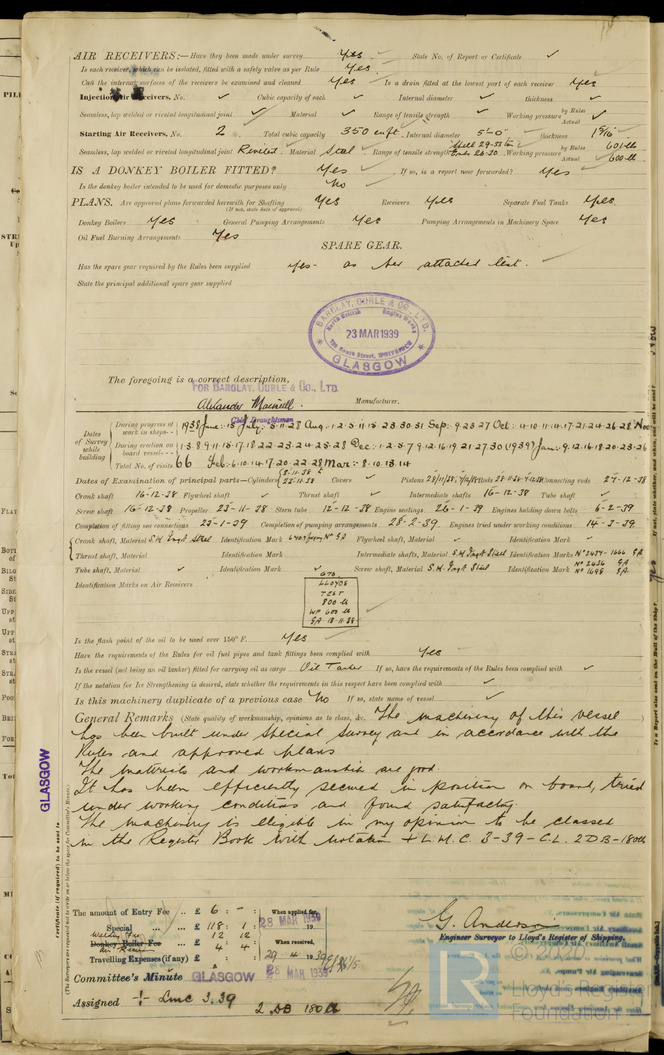 AIR RECEIVERS:—Have they been made under survey Yes State No. of Report or Certificate ✓
Is each receiver, which can be isolated, fitted with a safety valve as per Rule Yes.
Can the internal surfaces of the receivers be examined and cleaned Yes Is a drain fitted at the lowest part of each receiver Yes
Injection Air Receivers, No. ✓ Cubic capacity of each ✓ Internal diameter ✓ thickness ✓
Seamless, lap welded or riveted longitudinal joint ✓ Material ✓ Range of tensile strength ✓ Working pressure by Rules Actual ✓
Starting Air Receivers, No. 2 Total cubic capacity 350 cu.ft. Internal diameter 5'-0" thickness 1 9/16"
Seamless, lap welded or riveted longitudinal joint Riveted Material Steel Range of tensile strength Shell 29-33 tons Ends 26-30 Working pressure by Rules 601 lb Actual 600 lb
IS A DONKEY BOILER FITTED? Yes If so, is a report now forwarded? Yes
Is the donkey boiler intended to be used for domestic purposes only No
PLANS. Are approved plans forwarded herewith for Shafting Yes Receivers Yes Separate Fuel Tanks Yes.
(If not, state date of approval)
Donkey Boilers Yes General Pumping Arrangements Yes Pumping Arrangements in Machinery Space Yes
Oil Fuel Burning Arrangements Yes
SPARE GEAR.
Has the spare gear required by the Rules been supplied Yes - as per attached list.
State the principal additional spare gear supplied
BARCLAY, CURLE & CO., LTD.
North British Engine Works
23 MAR 1939
739 South Street, WHITEINCH
GLASGOW
The foregoing is a correct description,
FOR BARCLAY, CURLE & CO., LTD.
Alexander Maxwell. Manufacturer.
Chief Draughtsman
Dates of Survey while building
During progress of work in shops-- 1938 June: 15 July: 5.11.28 Aug: 1.2.5.11.15 23 30 31 Sep: 9 23 27 Oct: 4.10.11.14.17.21.24.26.28 Nov
During erection on board vessel--- 1.3 8 9.11.15.17.18 22.23.24.25.28 Dec: 1.2.5.7.9.12.16.19.21.27 30 (1939) Jan: 9.12.16.18.20.23.26
Total No. of visits 66 Feb: 6.10.14.17.20.22.28 Mar: 8.10.13.14
Dates of Examination of principal parts—Cylinders 23-11-38 Covers ✓ Pistons Rods Connecting rods 27-12-38
Crank shaft 16-12-38 Flywheel shaft ✓ Thrust shaft ✓ Intermediate shafts 16-12-38 Tube shaft ✓
Screw shaft 16-12-38 Propeller 23-11-38 Stern tube 12-12-38 Engine seatings 26-1-39 Engines holding down bolts 6-2-39
Completion of fitting sea connections 23-1-39 Completion of pumping arrangements 28-2-39 Engines tried under working conditions 14-3-39
Crank shaft, Material S.M. Ingot Steel Identification Mark Flywheel shaft, Material ✓ Identification Mark ✓
Thrust shaft, Material Identification Mark Intermediate shafts, Material S.M. Ingot Steel Identification Marks
Tube shaft, Material ✓ Identification Mark ✓ Screw shaft, Material S.M. Ingot Steel Identification Mark
Identification Marks on Air Receivers
LLOYDS
TEST
800 lb
WP 600 lb
GA 18-11-38
Is the flash point of the oil to be used over 150° F. Yes
Have the requirements of the Rules for oil fuel pipes and tank fittings been complied with Yes
Is the vessel (not being an oil tanker) fitted for carrying oil as cargo Oil Tanker If so, have the requirements of the Rules been complied with ✓
If the notation for Ice Strengthening is desired, state whether the requirements in this respect have been complied with ✓
Is this machinery duplicate of a previous case No If so, state name of vessel ✓
General Remarks (State quality of workmanship, opinions as to class, &c. The machinery of this vessel
has been built under special survey and in accordance with the
Rules and approved plans
The materials and workmanship are good.
It has been efficiently secured in position on board, tried
under working conditions and found satisfactory.
The machinery is eligible in my opinion to be classed
in the Register Book with notation + L.M.C. 3-39 - C.L. 2DB-180 lb
GLASGOW
The amount of Entry Fee .. £ 6 : - : When applied for,
Special .. £ 118 : 1 : 28 MAR 1939
Welding Fee 12 12
Donkey Boiler Fee .. £ 4 4 When received,
Travelling Expenses (if any) £ 29 4 1939
G. Anderson
Engineer Surveyor to Lloyd's Register of Shipping.
Committee's Minute GLASGOW 28 MAR 1939
Assigned + LMC 3.39
2 DB 180 lb
© 2020
LR
Lloyd's Register
Foundation